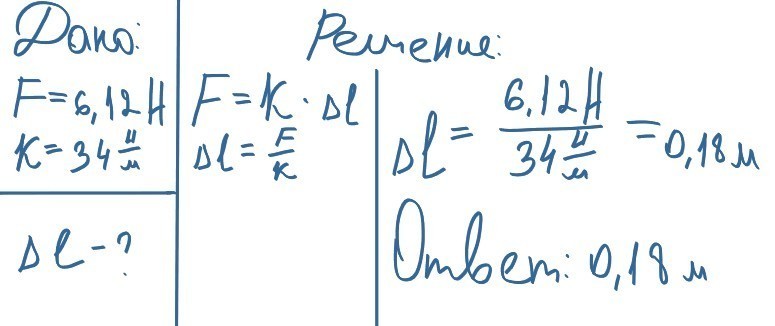 Дано:
F = 6,12 Н
K = 34 Н/м
Δl - ?
Решение:
F = K · Δl
Δl = F/K
Δl = 6,12 Н / 34 Н/м = 0,18 м
Ответ: 0,18 м